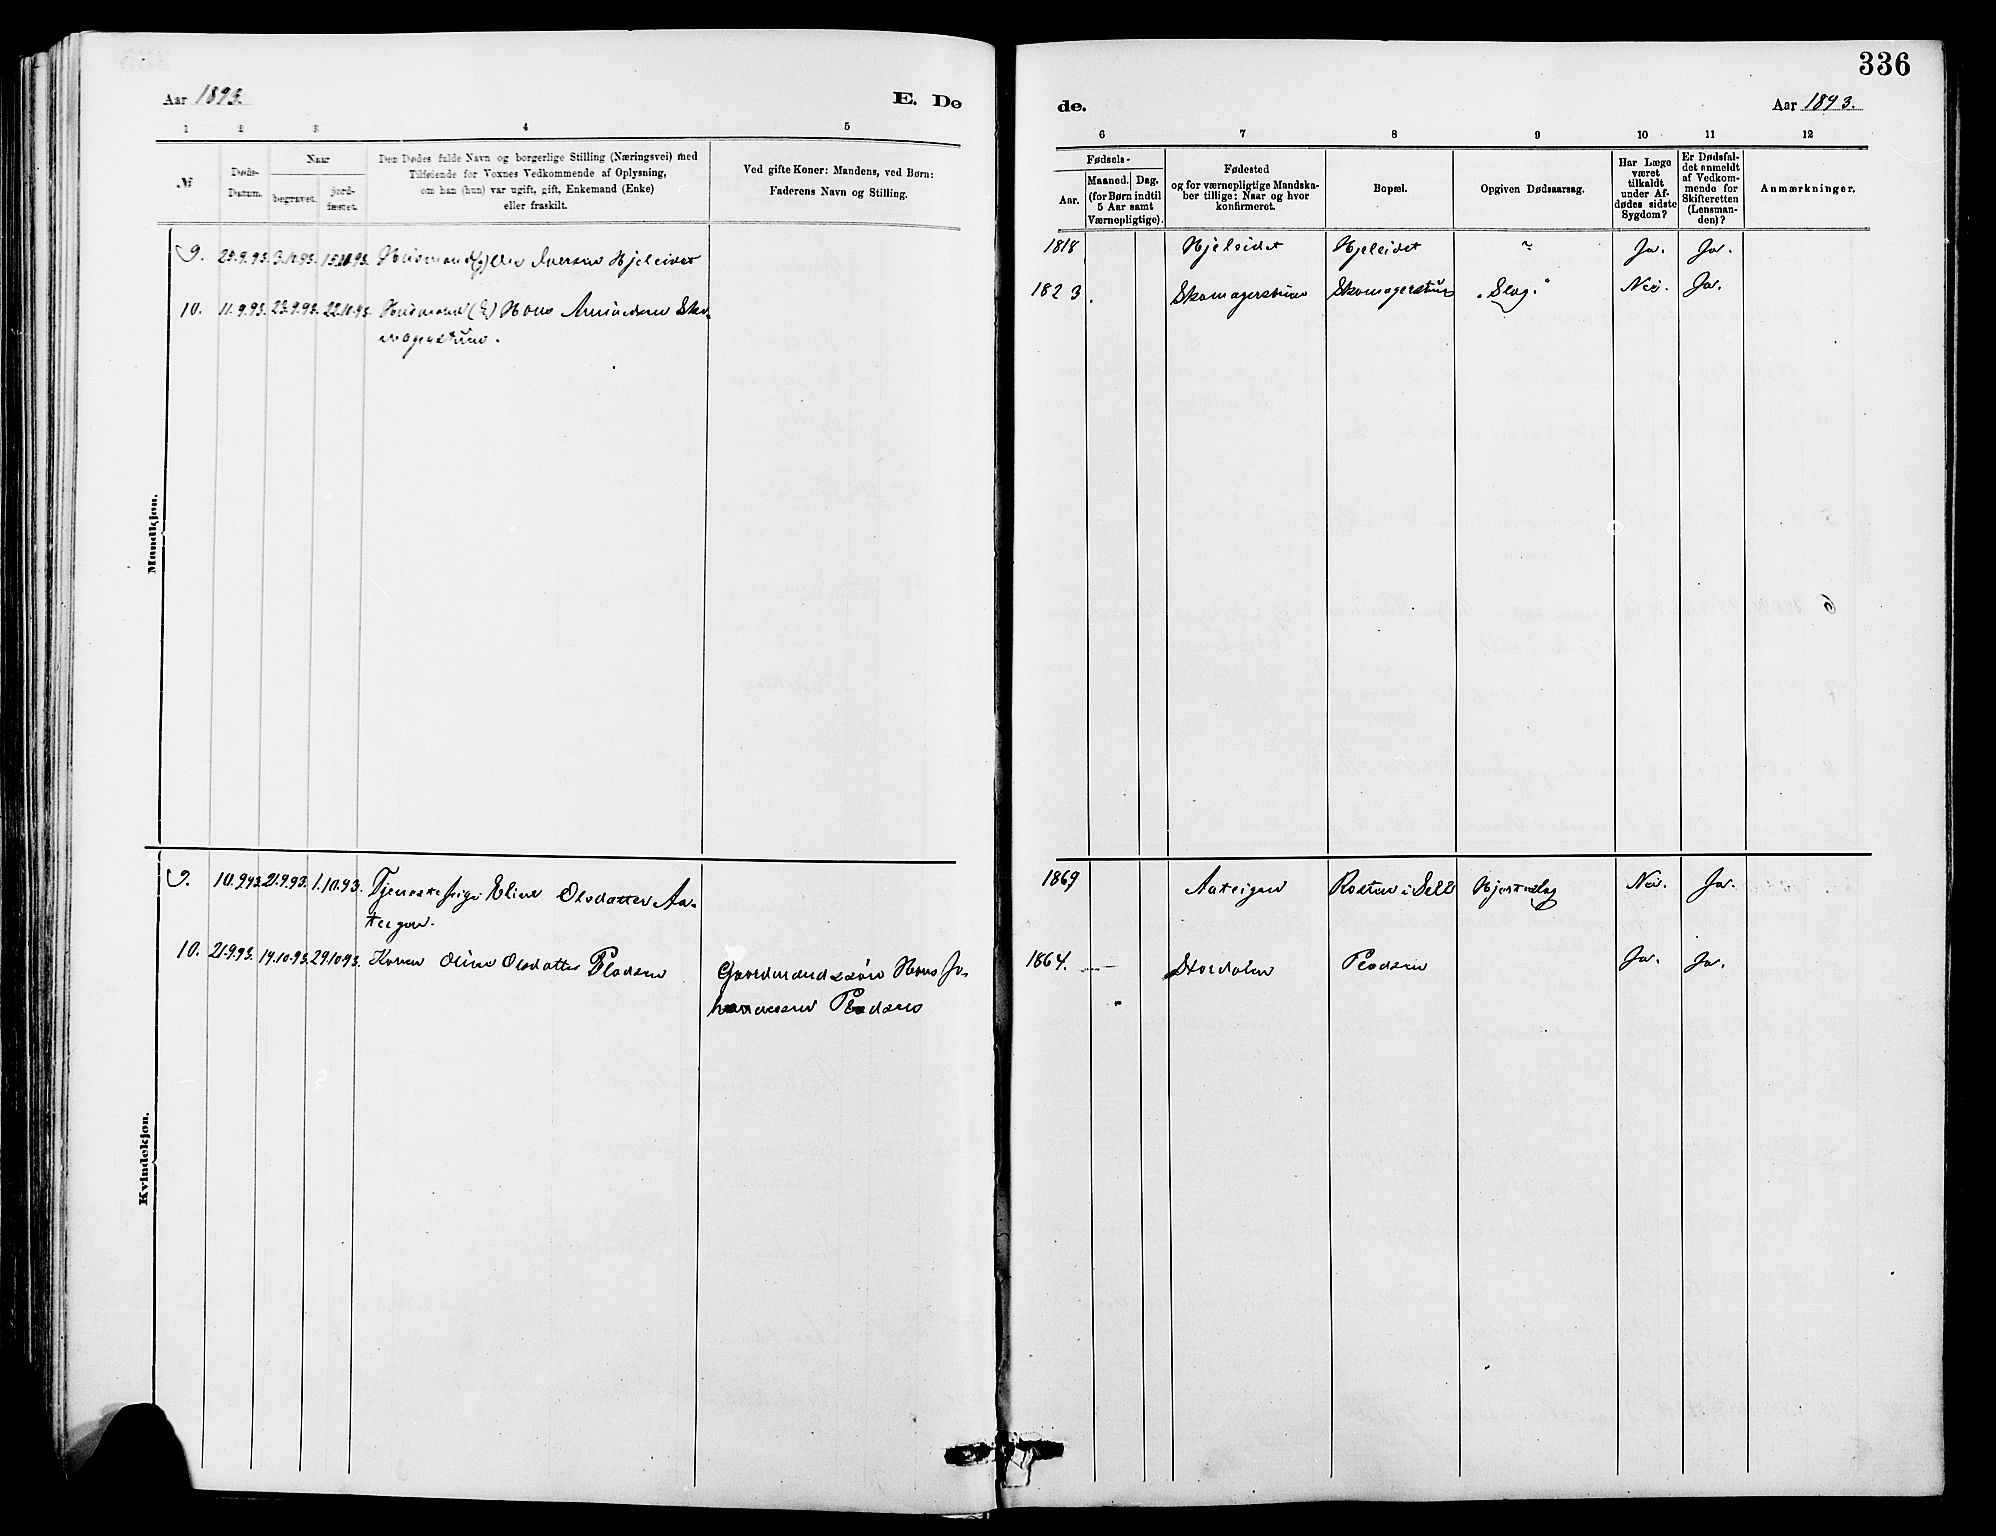 336
Aar 1893.
E. Dø
de.
Aar 1893.
1 2 3 4 5
6 7 8 9 10 11 12
№
Døds-
Datum.
Naar
begravet.
jord-
fæstet.
Den Dødes fulde Navn og borgerlige Stilling (Næringsvei) med
Tilføiende for Voxnes Vedkommende af Oplysning,
om han (hun) var ugift, gift, Enkemand (Enke)
eller fraskilt.
Ved gifte Koner: Mandens, ved Børn:
Faderens Navn og Stilling.
Fødsels-
Aar.
Maaned. Dag.
(for Børn indtil
5 Aar samt
Værnepligtige).
Fødested
og for værnepligtige Mandska-
ber tillige: Naar og hvor
konfirmeret.
Bopæl.
Opgiven Dødsaarsag.
Har Læge
været
tilkaldt
under Af-
dødes sidste
Sygdom?
Er Dødsfal-
det anmeldt
af Vedkom-
mende for
Skifteretten
(Lensman-
den)?
Anmærkninger.
Mandkjøn.
9. Husmand Iversen Hjeleidet
1818 Hjeleidet Hjeleidet Ja. Ja.
10. 11.9.93. 23.9.93. 22.11.93. Husmand (E) Hans Amundsen Sko-
magerstuen.
1823. Skomagerstuen Skomagerstuen "Slag." Nei. Ja.
Kvindekjøn.
9. 10.9.93. 21.9.93. 1.10.93. Tjenestepige Eline Olsdatter Aa-
teigen.
1869 Aateigen Rosten i Sell Hjerteslag Nei. Ja.
10. 21.9.93. 14.10.93. 29.10.93. Konen Oline Olsdatter Pladsen
Gaardmandssøn Hans Jo-
hannessen Pladsen
1864. Stordalen Pladsen Ja. Ja.